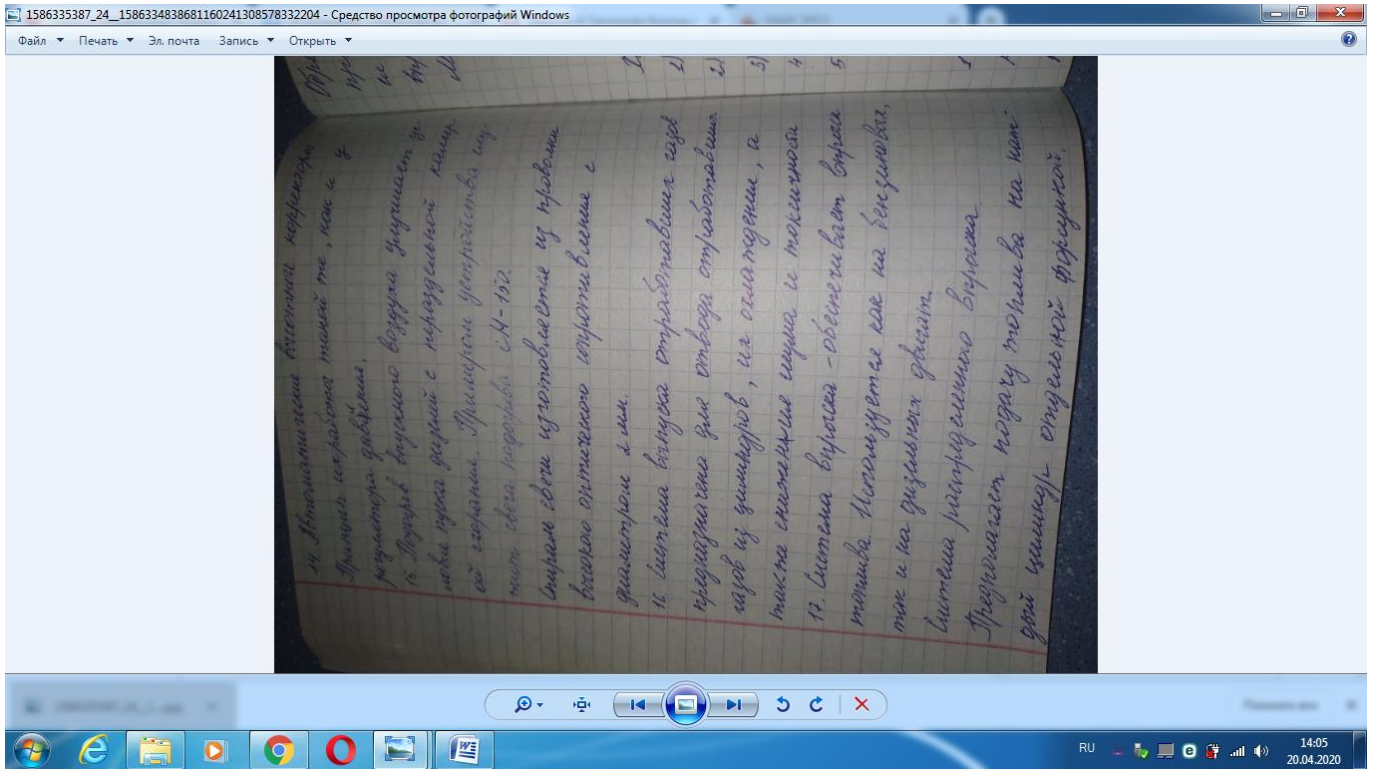 1586335387_24__15863348386811602413085783​32204 - Средство просмотра фотографий Windows
Файл Печать Эл. почта Запись Открыть
14. Автоматические высотные корректоры
Принцип их работы такой же, как и у
регулятора давления.
15. Подогрев впускного воздуха улучшает ус-
ловия пуска дизелей с неразделенной камер
ой сгорания. Примером устройства слу-
жит свеча подогрева СН-150.
Спираль свечи изготовляется из проволоки
высокого оптического сопротивления с
диаметром 2 мм.
16 Система выпуска отработавших газов
предназначена для отвода отработавших
газов из цилиндров, их охлаждение, а
также снижение шума и токсичности
17. Система впрыска - обеспечивает впрыск
топлива. Используется как на бензиновых,
так и на дизельных двигат.
Система распределенного впрыска
Предполагает подачу топлива на каж-
дый цилиндр отдельной форсункой,
2)
3)
4
5
RU
14:05
20.04.2020